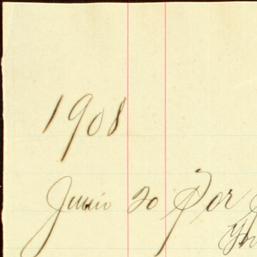 1908
Junio 20 Por